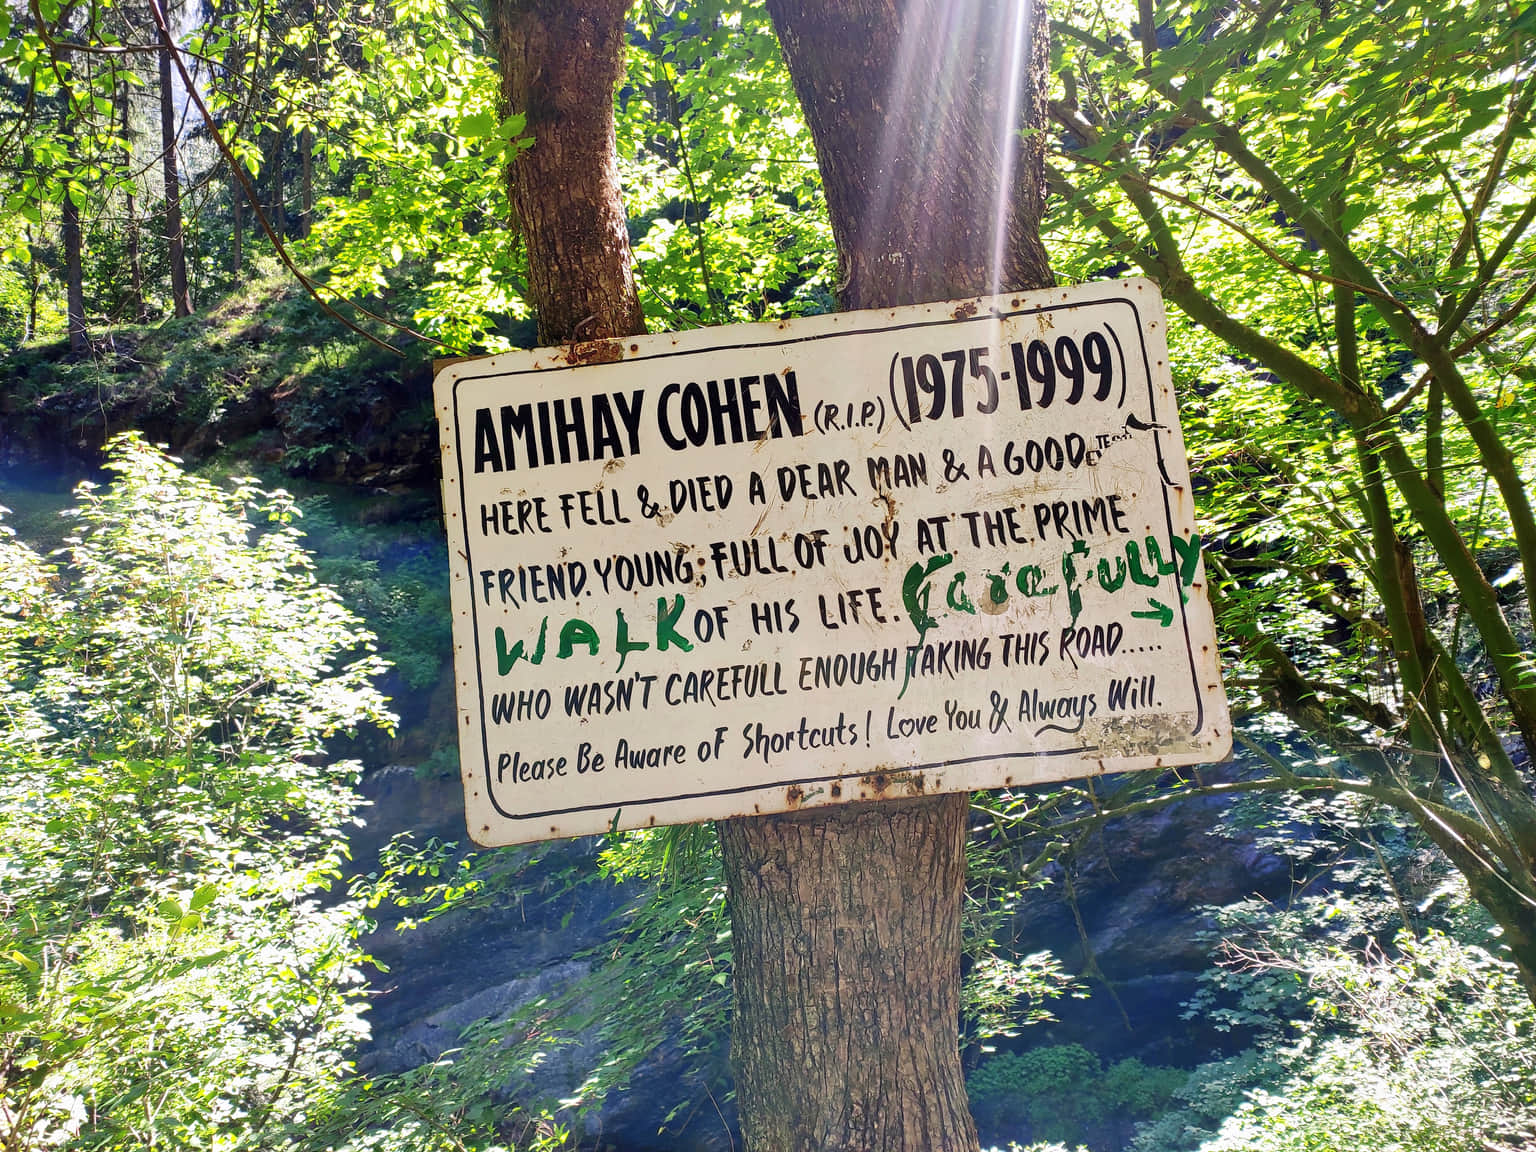 AMIHAY COHEN (R.I.P.) (1975-1999)
HERE FELL & DIED A DEAR MAN & A GOOD
FRIEND. YOUNG, FULL OF JOY AT THE PRIME
WALK OF HIS LIFE. Carefully →
WHO WASN'T CAREFULL ENOUGH TAKING THIS ROAD.....
Please Be Aware oF Shortcuts! Love You & Always Will.